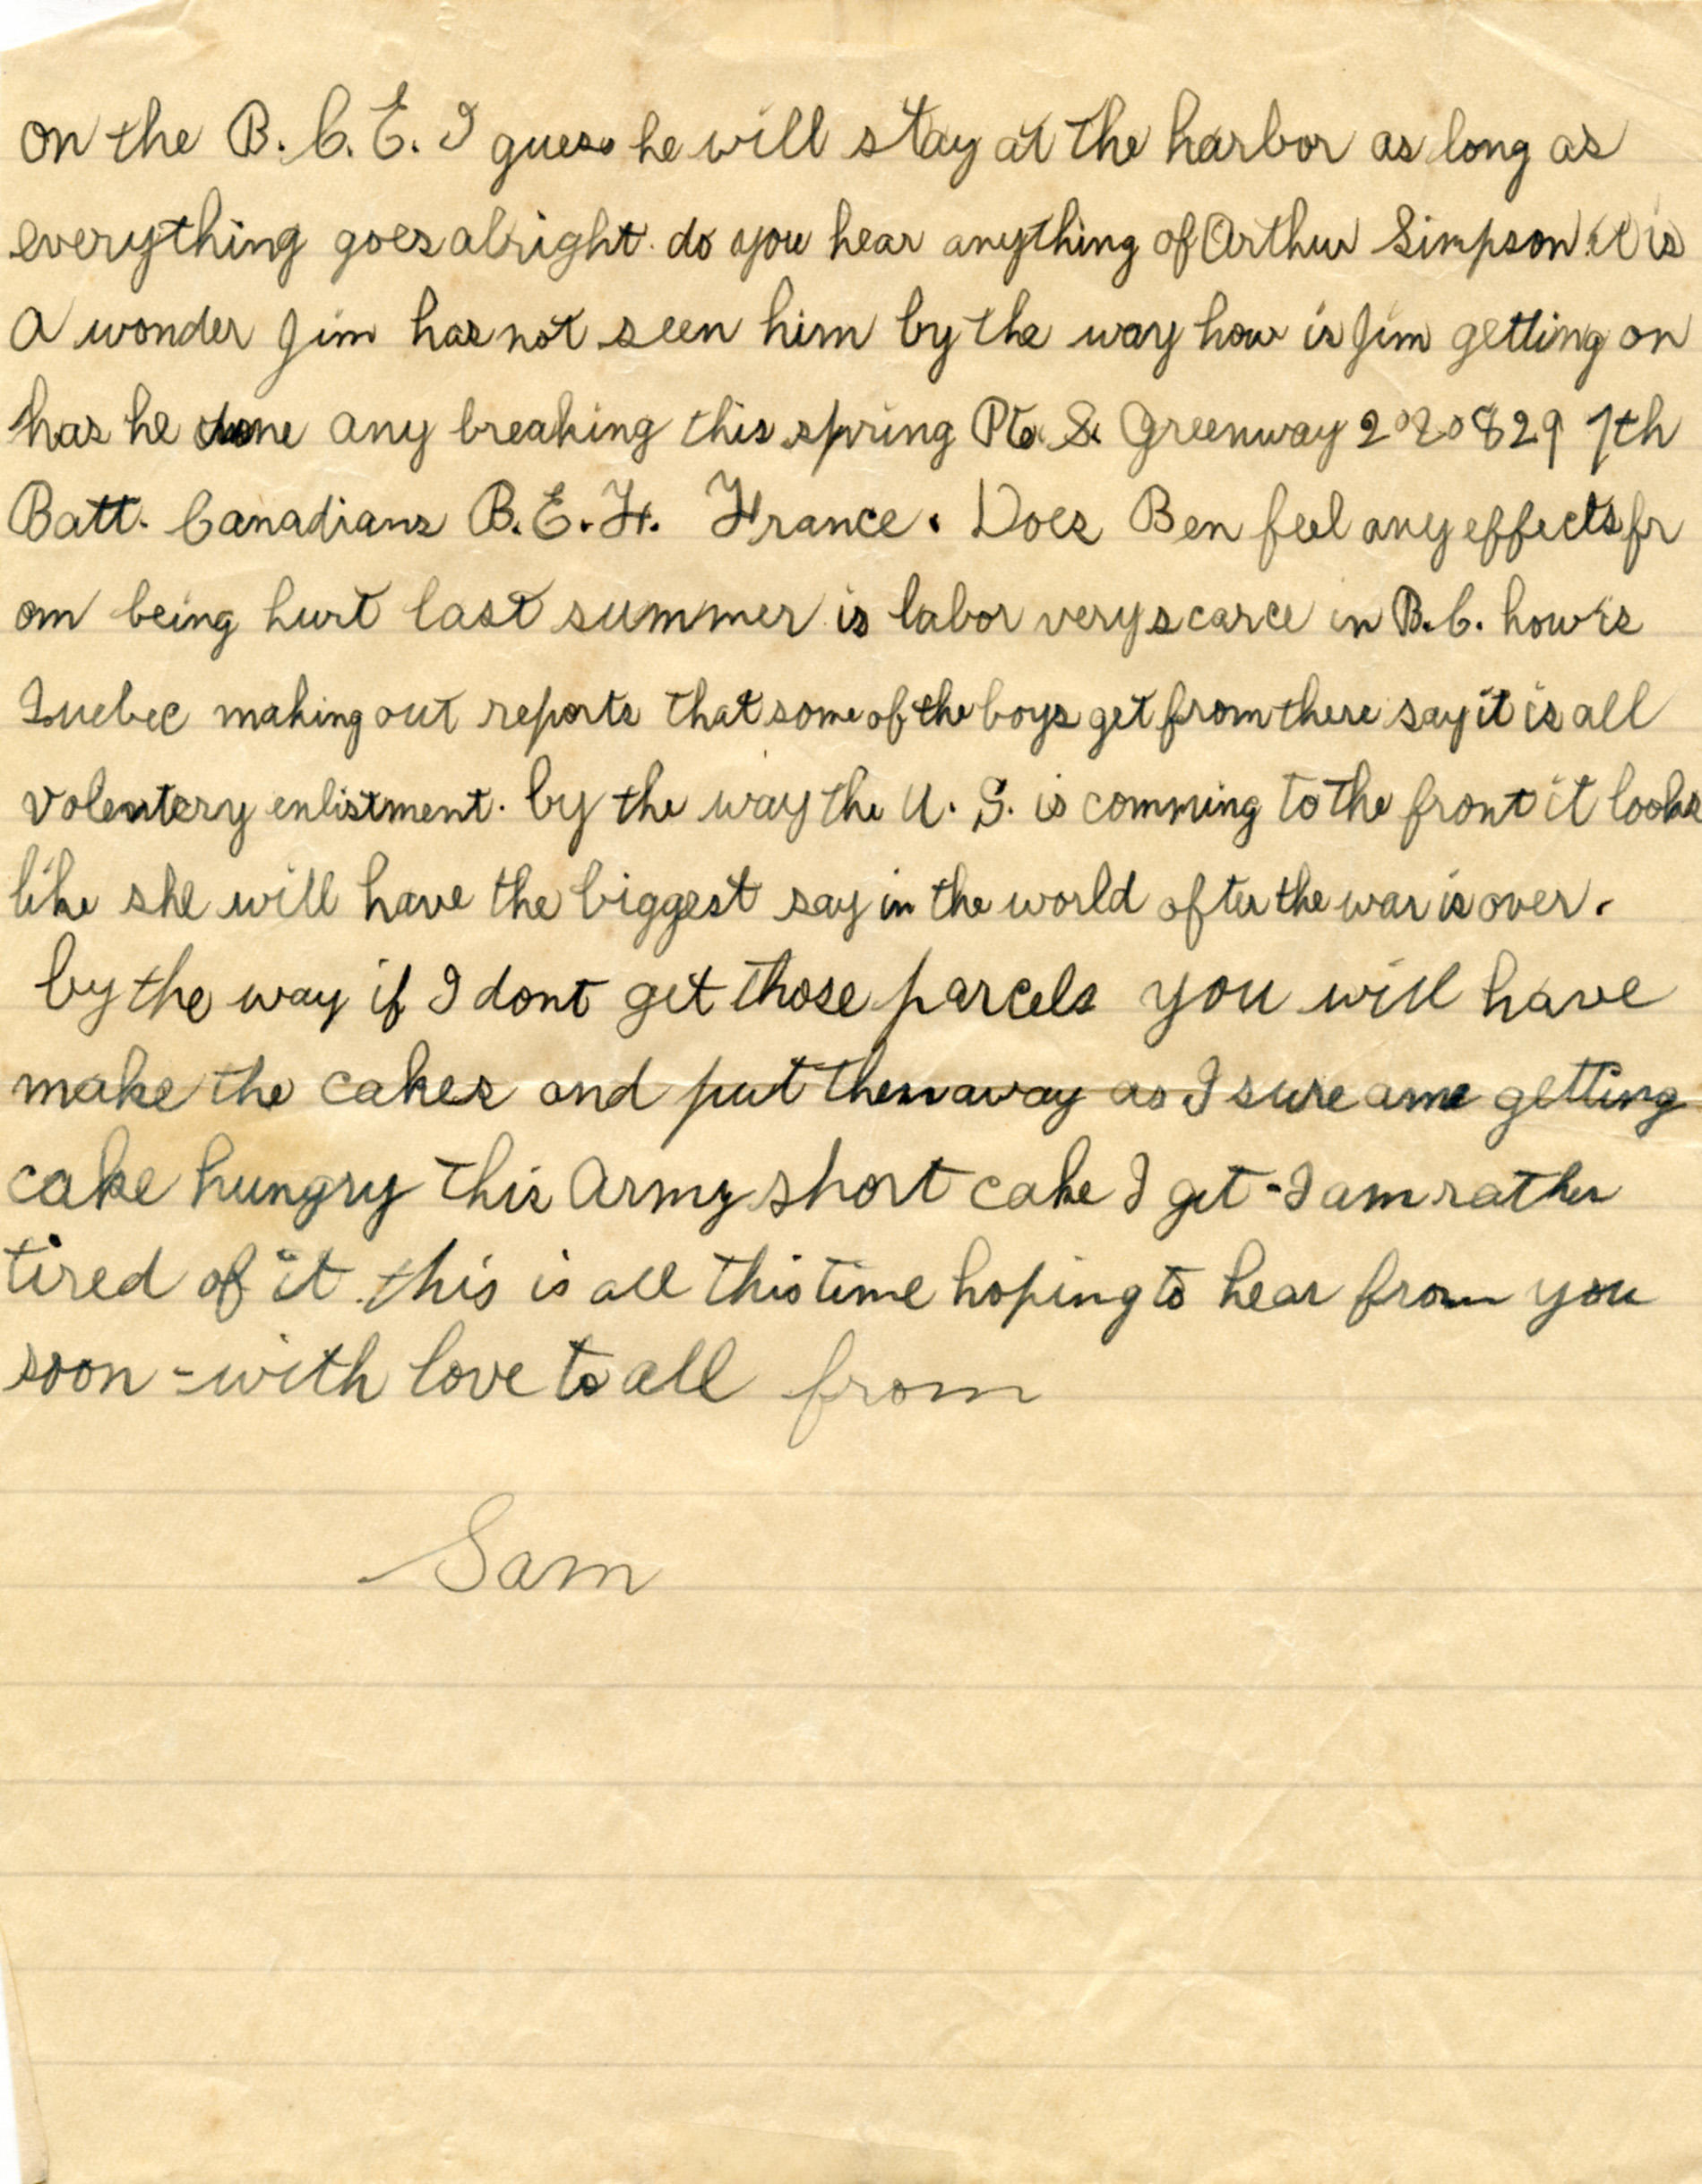 on the B. C. E. I guess he will stay at the harbor as long as
everything goes alright. do you hear anything of Arthur Simpson it is
a wonder Jim has not seen him by the way how is Jim getting on
has he done any breaking this spring Pte. S. Greenway 2020829 7th
Batt. Canadians B.E.F. France. Does Ben feel any effects fr
om being hurt last summer is labor very scarce in B.C. how is
Quebec making out reports that some of the boys get from there say it is all
volentery enlistment. by the way the U. S. is comming to the front it looks
like she will have the biggest say in the world after the war is over.
by the way if I dont get those parcels you will have
make the cakes and put them away as I sure am getting
cake hungry this Army short cake I get - I am rather
tired of it. this is all this time hoping to hear from you
soon - with love to all from
Sam